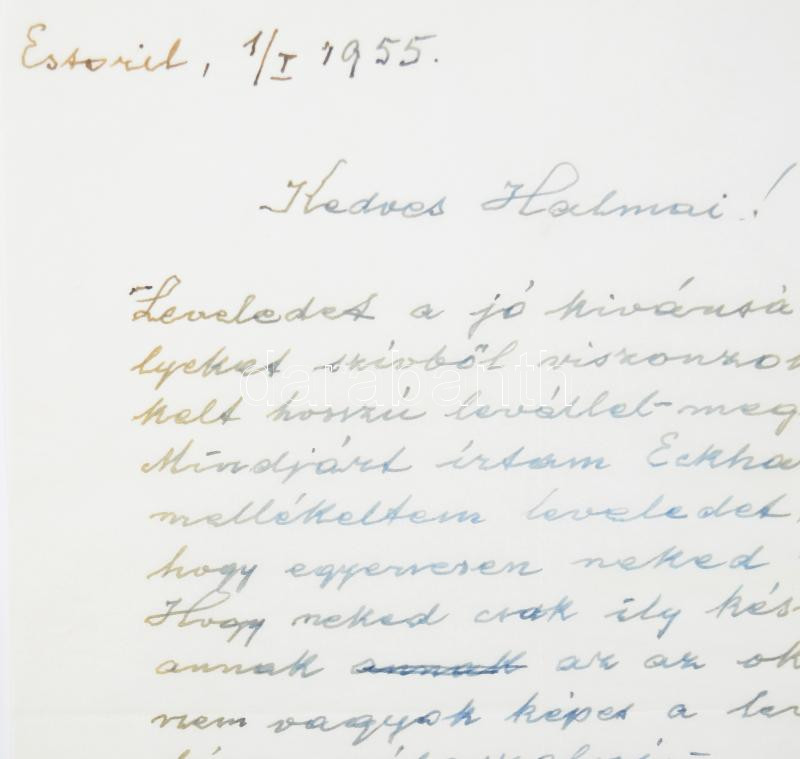 Estoril, 1/I 1955.
Kedves Halmai!
Leveledet a jó kivánsá
lyeket szívből viszonzo
kelt hosszú levéllel meg
Mindjárt írtam Eckha
mellékeltem leveledet,
hogy egyenesen neked
Hogy neked csak ily kés
annak annak az az ok
nem vagyok képes a lev
darabanth